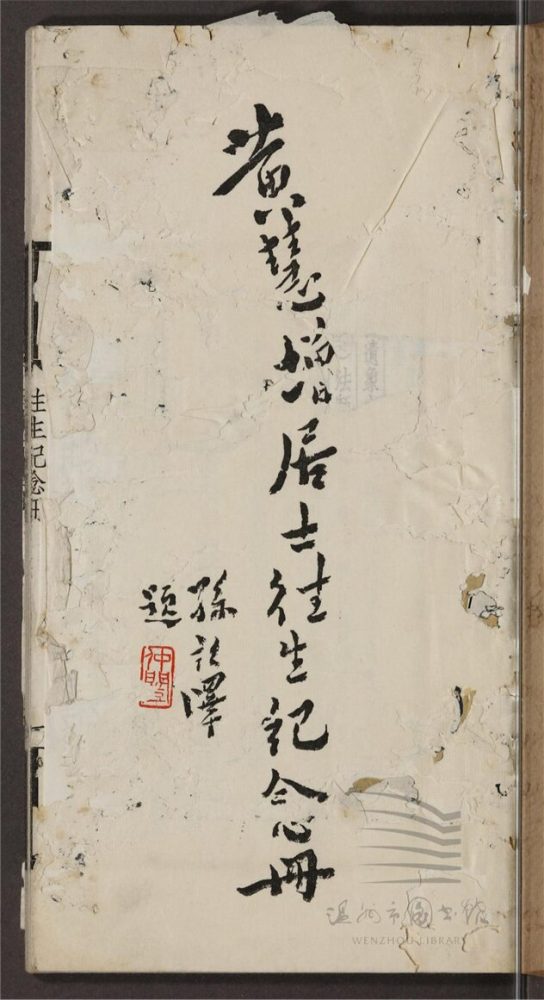 黃慧居士往生紀念冊
孫詒澤
題
仲闓
往生紀念冊
遺象
温州市图书馆
WENZHOU LIBRARY